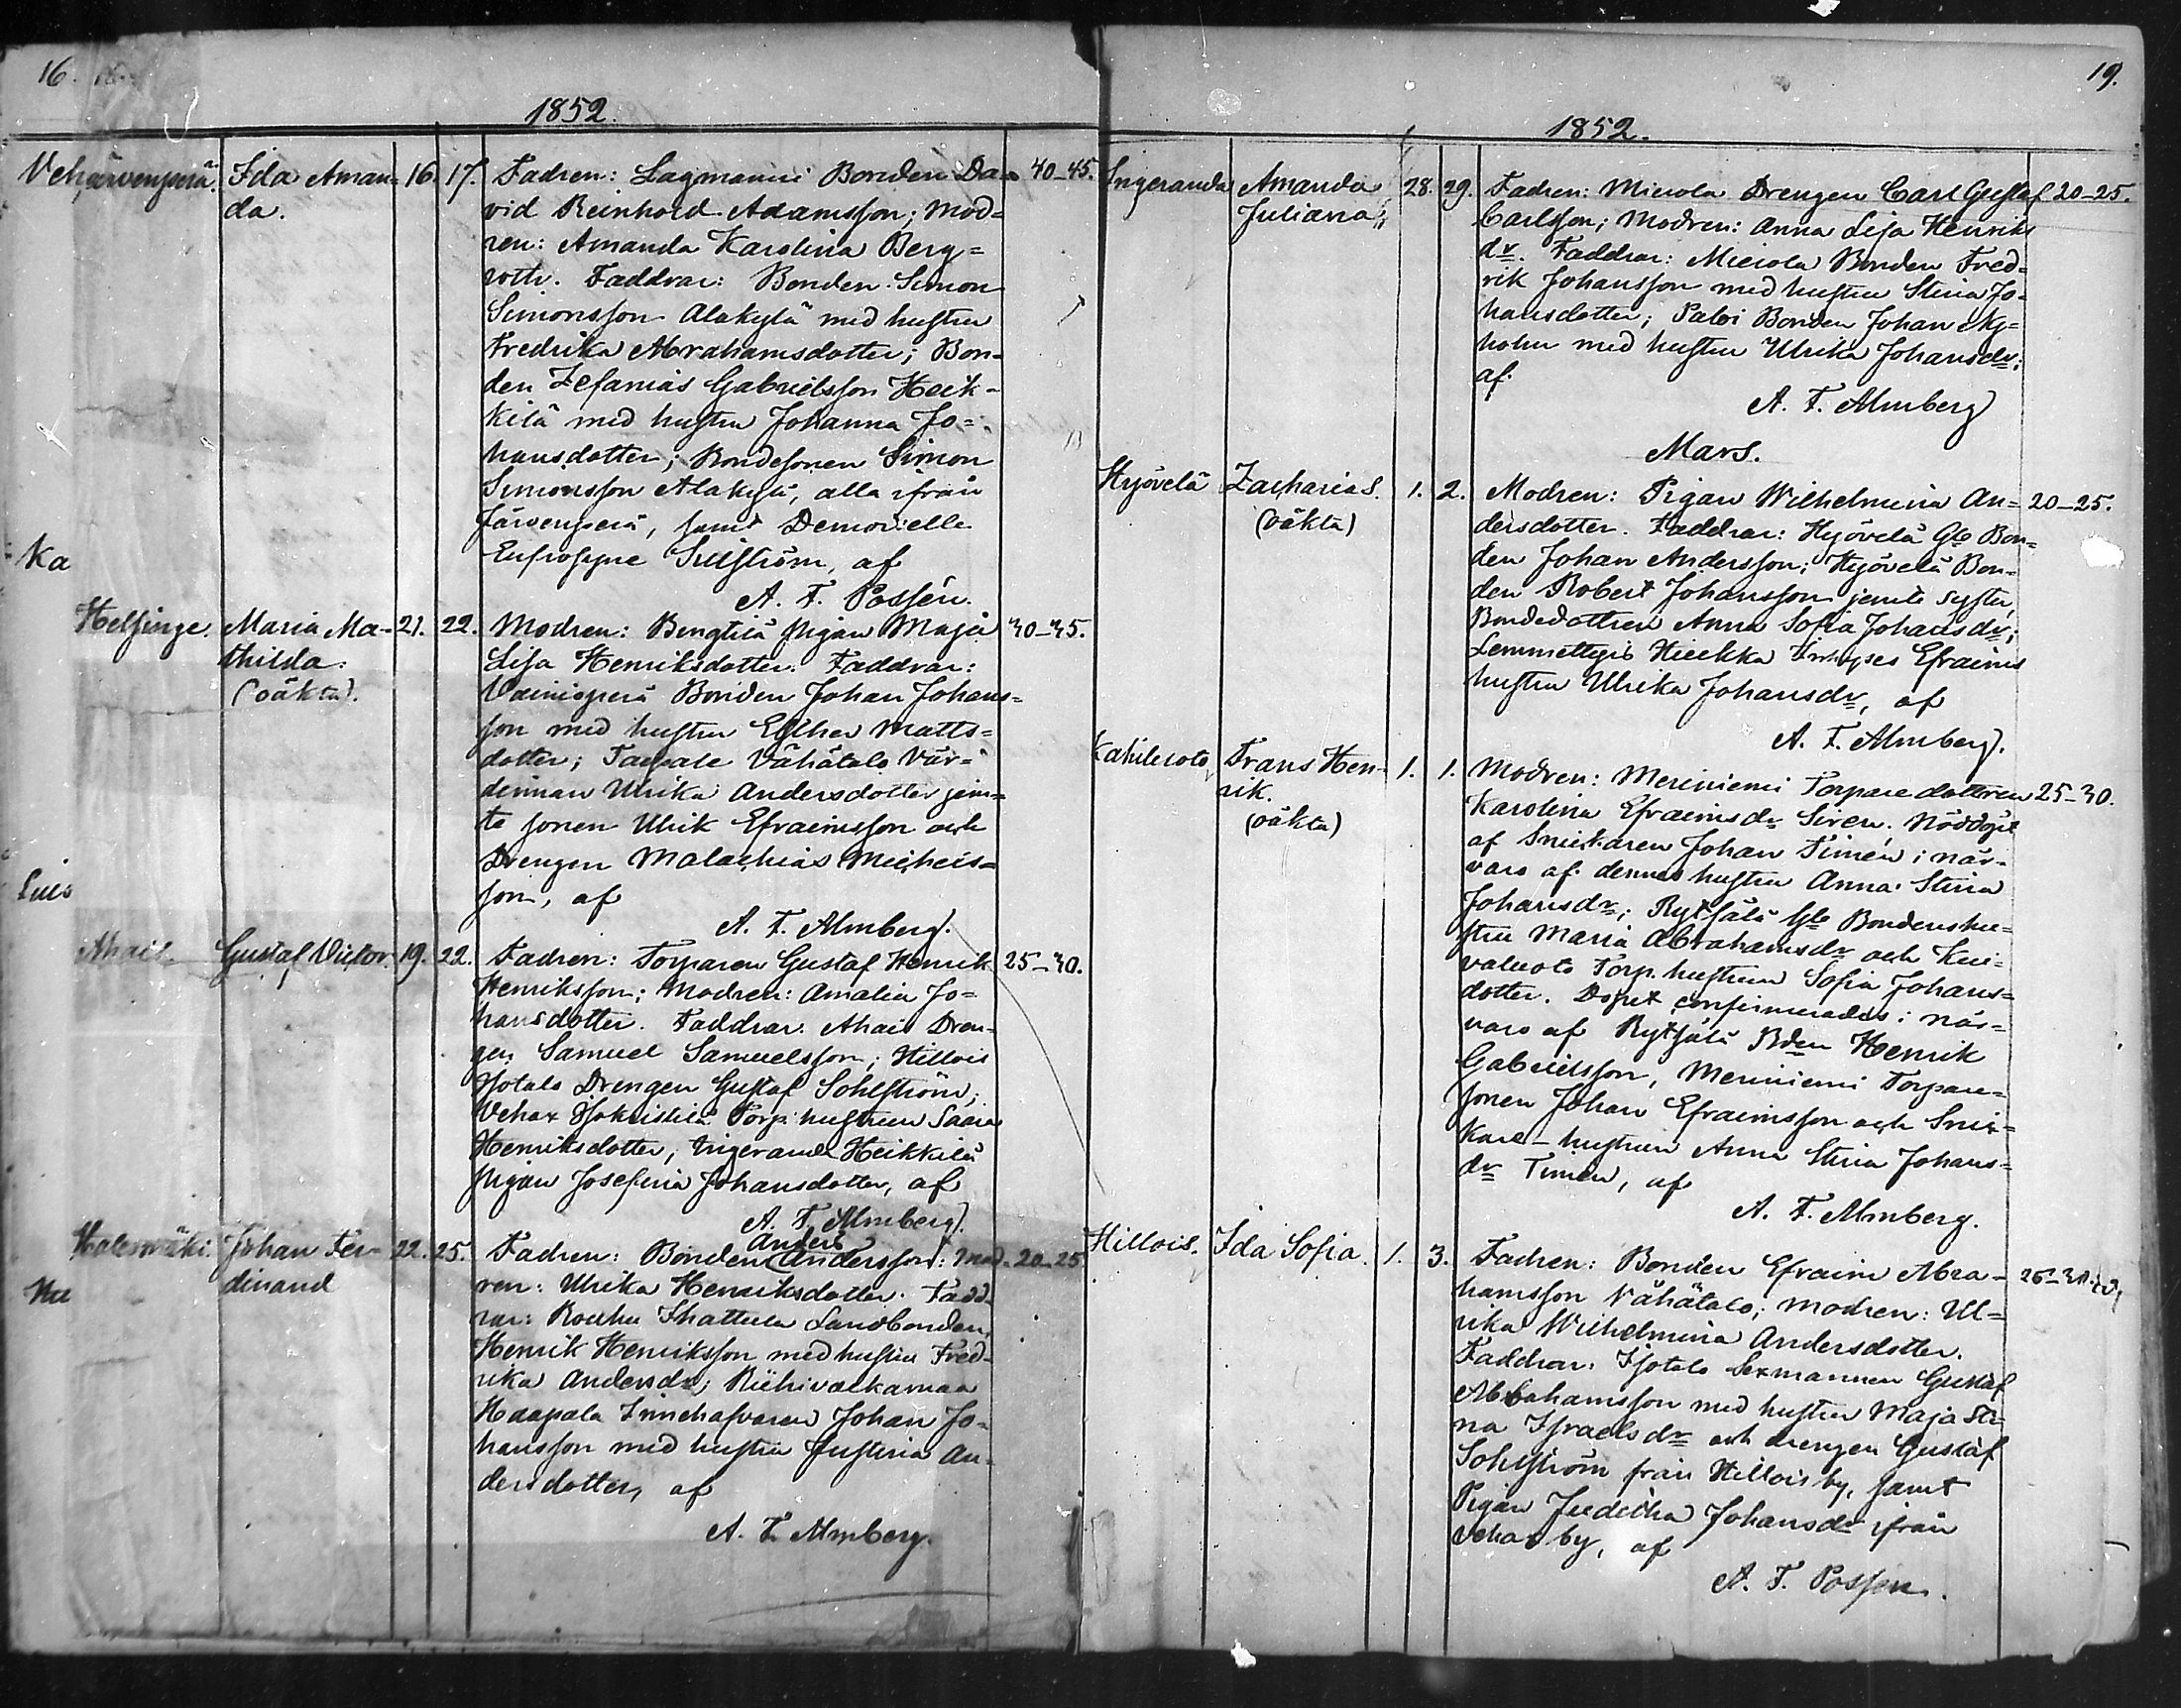 16.
1852.
Ida Aman- 16. 17. Fadren: Lagmanni Bonden Da- 40-45.
da. vid Reinhold Adamsson; Mod=
ren: Amanda Karolina Berg=
roth. Faddrar: Bonden Simon
Simonsson Alakylä med hustru
Fredrika Abrahamsdotter; Bon-
den Zefanias Gabrielsson Heik-
kilä med hustru Johanna Jo=
hansdotter; Bondesonen Simon
Simonsson Alakylä, alla ifrån
Järvenperä, samt Demoiselle
Ka
Eufrosyne af
A. F. Possén.
Helsinge. Maria Ma- 21. 22. Modren: Bengtilä Pigan Maja 30-35.
thilda. Lisa Henriksdotter. Faddrar:
(oäkta). Vainionperä Bonden Johan Johans=
son med hustru Esther Matts=
dotter; Vähätalo Vär-
dinnan Ulrika Andersdotter jem=
te sonen Ulrik Efraimsson och
Drengen Malachias Michels=
son, af
A. F. Almberg.
Ahais. Gustaf Victor. 19. 22. Fadren: Torparen Gustaf Henrik 25-30.
Henriksson; Modren: Amalia Jo=
hansdotter. Faddrar: Ahais Dren-
gen Samuel Samuelsson; Hillois
Isotalo Drengen Gustaf Sohlström;
Torp. hustrun Saara
Henriksdotter, Ingeranda Heikkilä
Pigan Josefina Johansdotter, af
A. F. Almberg.
Anders
Johan Fer- 22. 25. Fadren: Bonden Andersson; Mod- 20-25
dinand ren: Ulrika Henriksdotter. Fadd-
rar: Landbonden
Henrik Henriksson med hustru Fred-
rika Andersdr; Riihivalkamaa
Haapala Innehafvaren Johan Jo-
hansson med hustru Justina An-
dersdotter, af
A. F. Almberg.
19.
1852.
Ingeranda Amanda 28. 29. Fadren: Mierola Drengen Carl Gustaf 20-25.
Juliana Carlsson; Modren: Anna Lisa Henriks
dr. Faddrar: Mierola Bonden Fred-
rik Johansson med hustru Stina Jo-
hansdotter; Palvi Bonden Johan My-
holm med hustru Ulrika Johansdr;
af
A. F. Almberg
Mars.
Hyövelä Zacharias. 1. 2. Modren: Pigan Wilhelmina An- 20-25.
(oäkta) dersdotter. Faddrar: Hyövelä Gle Bon=
den Johan Andersson; Hyövelä Bon-
den Robert Johansson jemte syster,
Bondedottren Anna Sofia Johansdr;
Efraims
hustru Ulrika Johansdr, af
A. F. Almberg.
Kahiluoto Frans Hen- 1. 1. Modren: Meriniemi Torpare dottren 25-30.
rik. Karolina Efraimsdr Siren. Nöddöpt
(oäkta) af Snickaren Johan Timén i när-
varo af dennes hustru Anna Stina
Johansdr; Rytsälä Gle Bondenshu-
stru Maria Abrahamsdr och Kui-
valuoto Torp. hustrun Sofia Johans=
dotter. Dopet confirmerades i när-
varo af Rytsälä Bden Henrik
Gabrielsson, Meriniemi Torpare-
sonen Johan Efraimsson och Snic-
kare-hustrun Anna Stina Johans=
dr Timén, af
A. F. Almberg.
Hillois. Ida Sofia. 1. 3. Fadren: Bonden Efraim Abra-
hamsson Vähätalo; Modren: Ul-
rika Wilhelmina Andersdotter.
Faddrar: Isotalo Sexmannen Gustaf
Abrahamsson med hustru Maja Sti-
na Israelsdr och drengen Gustaf
Sohlström från Hillois by, samt
Pigan Juditha Johansdr ifrån
Vehas by, af
A. F. Possen.